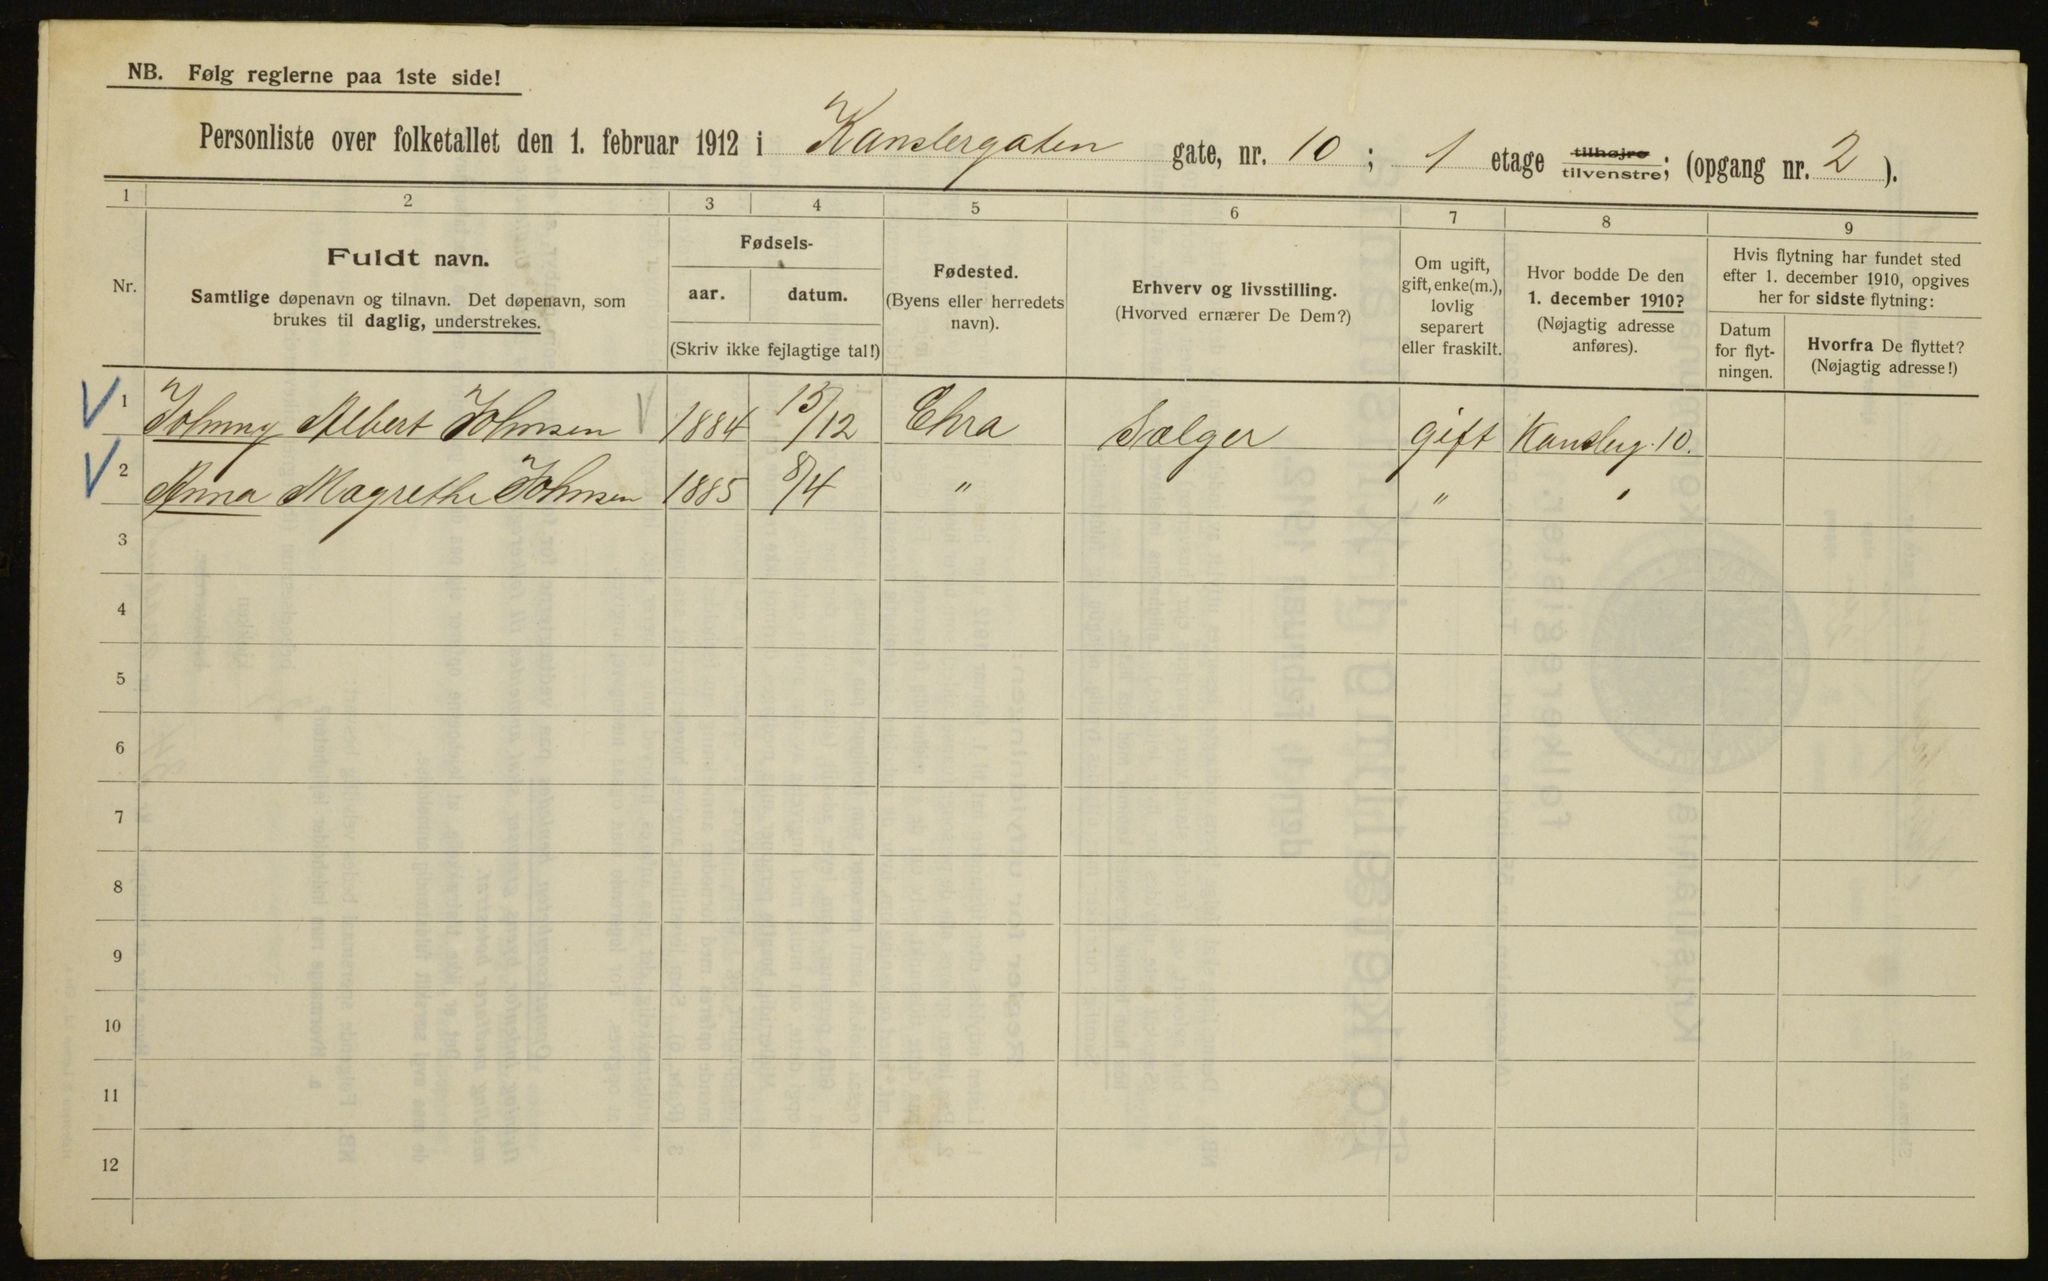 NB. Følg reglerne paa 1ste side!
Personliste over folketallet den 1. februar 1912 i Kanslergaten gate, nr. 10 ; 1 etage tilhøjre tilvenstre; (opgang nr. 2 ).
1 2 3 4 5 6 7 8 9
Nr.
Fuldt navn.
Samtlige døpenavn og tilnavn. Det døpenavn, som
brukes til daglig, understrekes.
Fødsels-
aar. datum.
(Skriv ikke fejlagtige tal!)
Fødested.
(Byens eller herredets
navn).
Erhverv og livsstilling.
(Hvorved ernærer De Dem?)
Om ugift,
gift, enke(m.),
lovlig
separert
eller fraskilt.
Hvor bodde De den
1. december 1910?
(Nøjagtig adresse
anføres).
Hvis flytning har fundet sted
efter 1. december 1910, opgives
her for sidste flytning:
Datum
for flyt-
ningen.
Hvorfra De flyttet?
(Nøjagtig adresse!)
1 Johnny Albert Johnsen 1884 13/12 Chra Sælger gift Kanslerg. 10.
2 Anna Magrethe Johnsen 1885 8/4 " " "
3
4
5
6
7
8
9
10
11
12